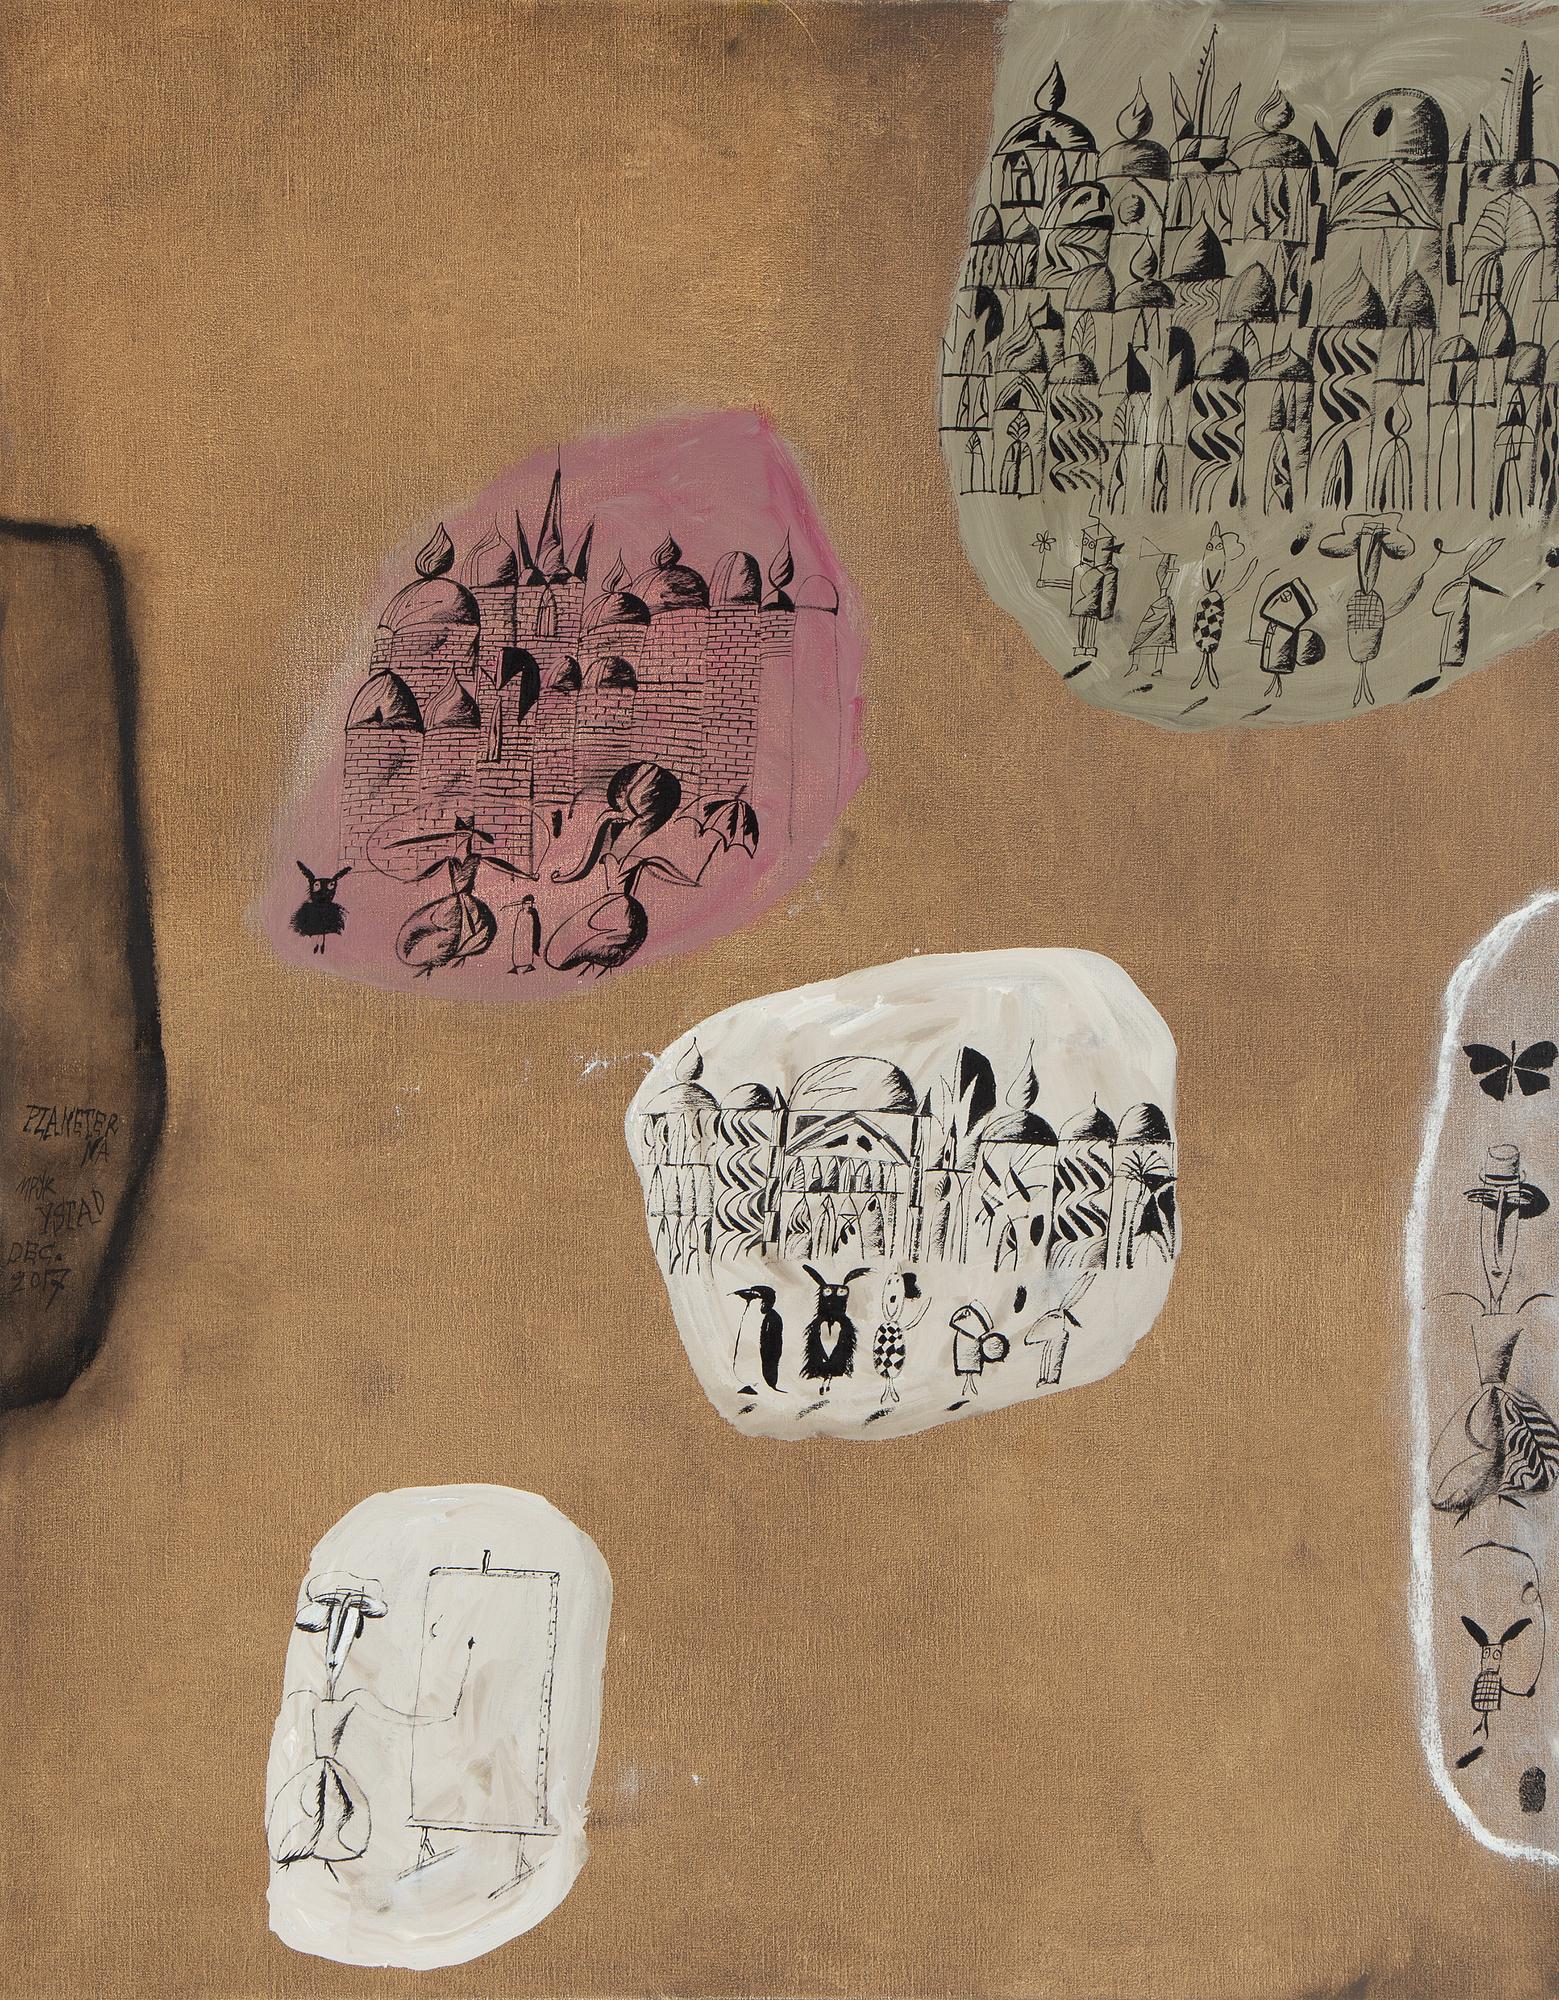 PLANETER
NA
YSTAD
DEC.
2017